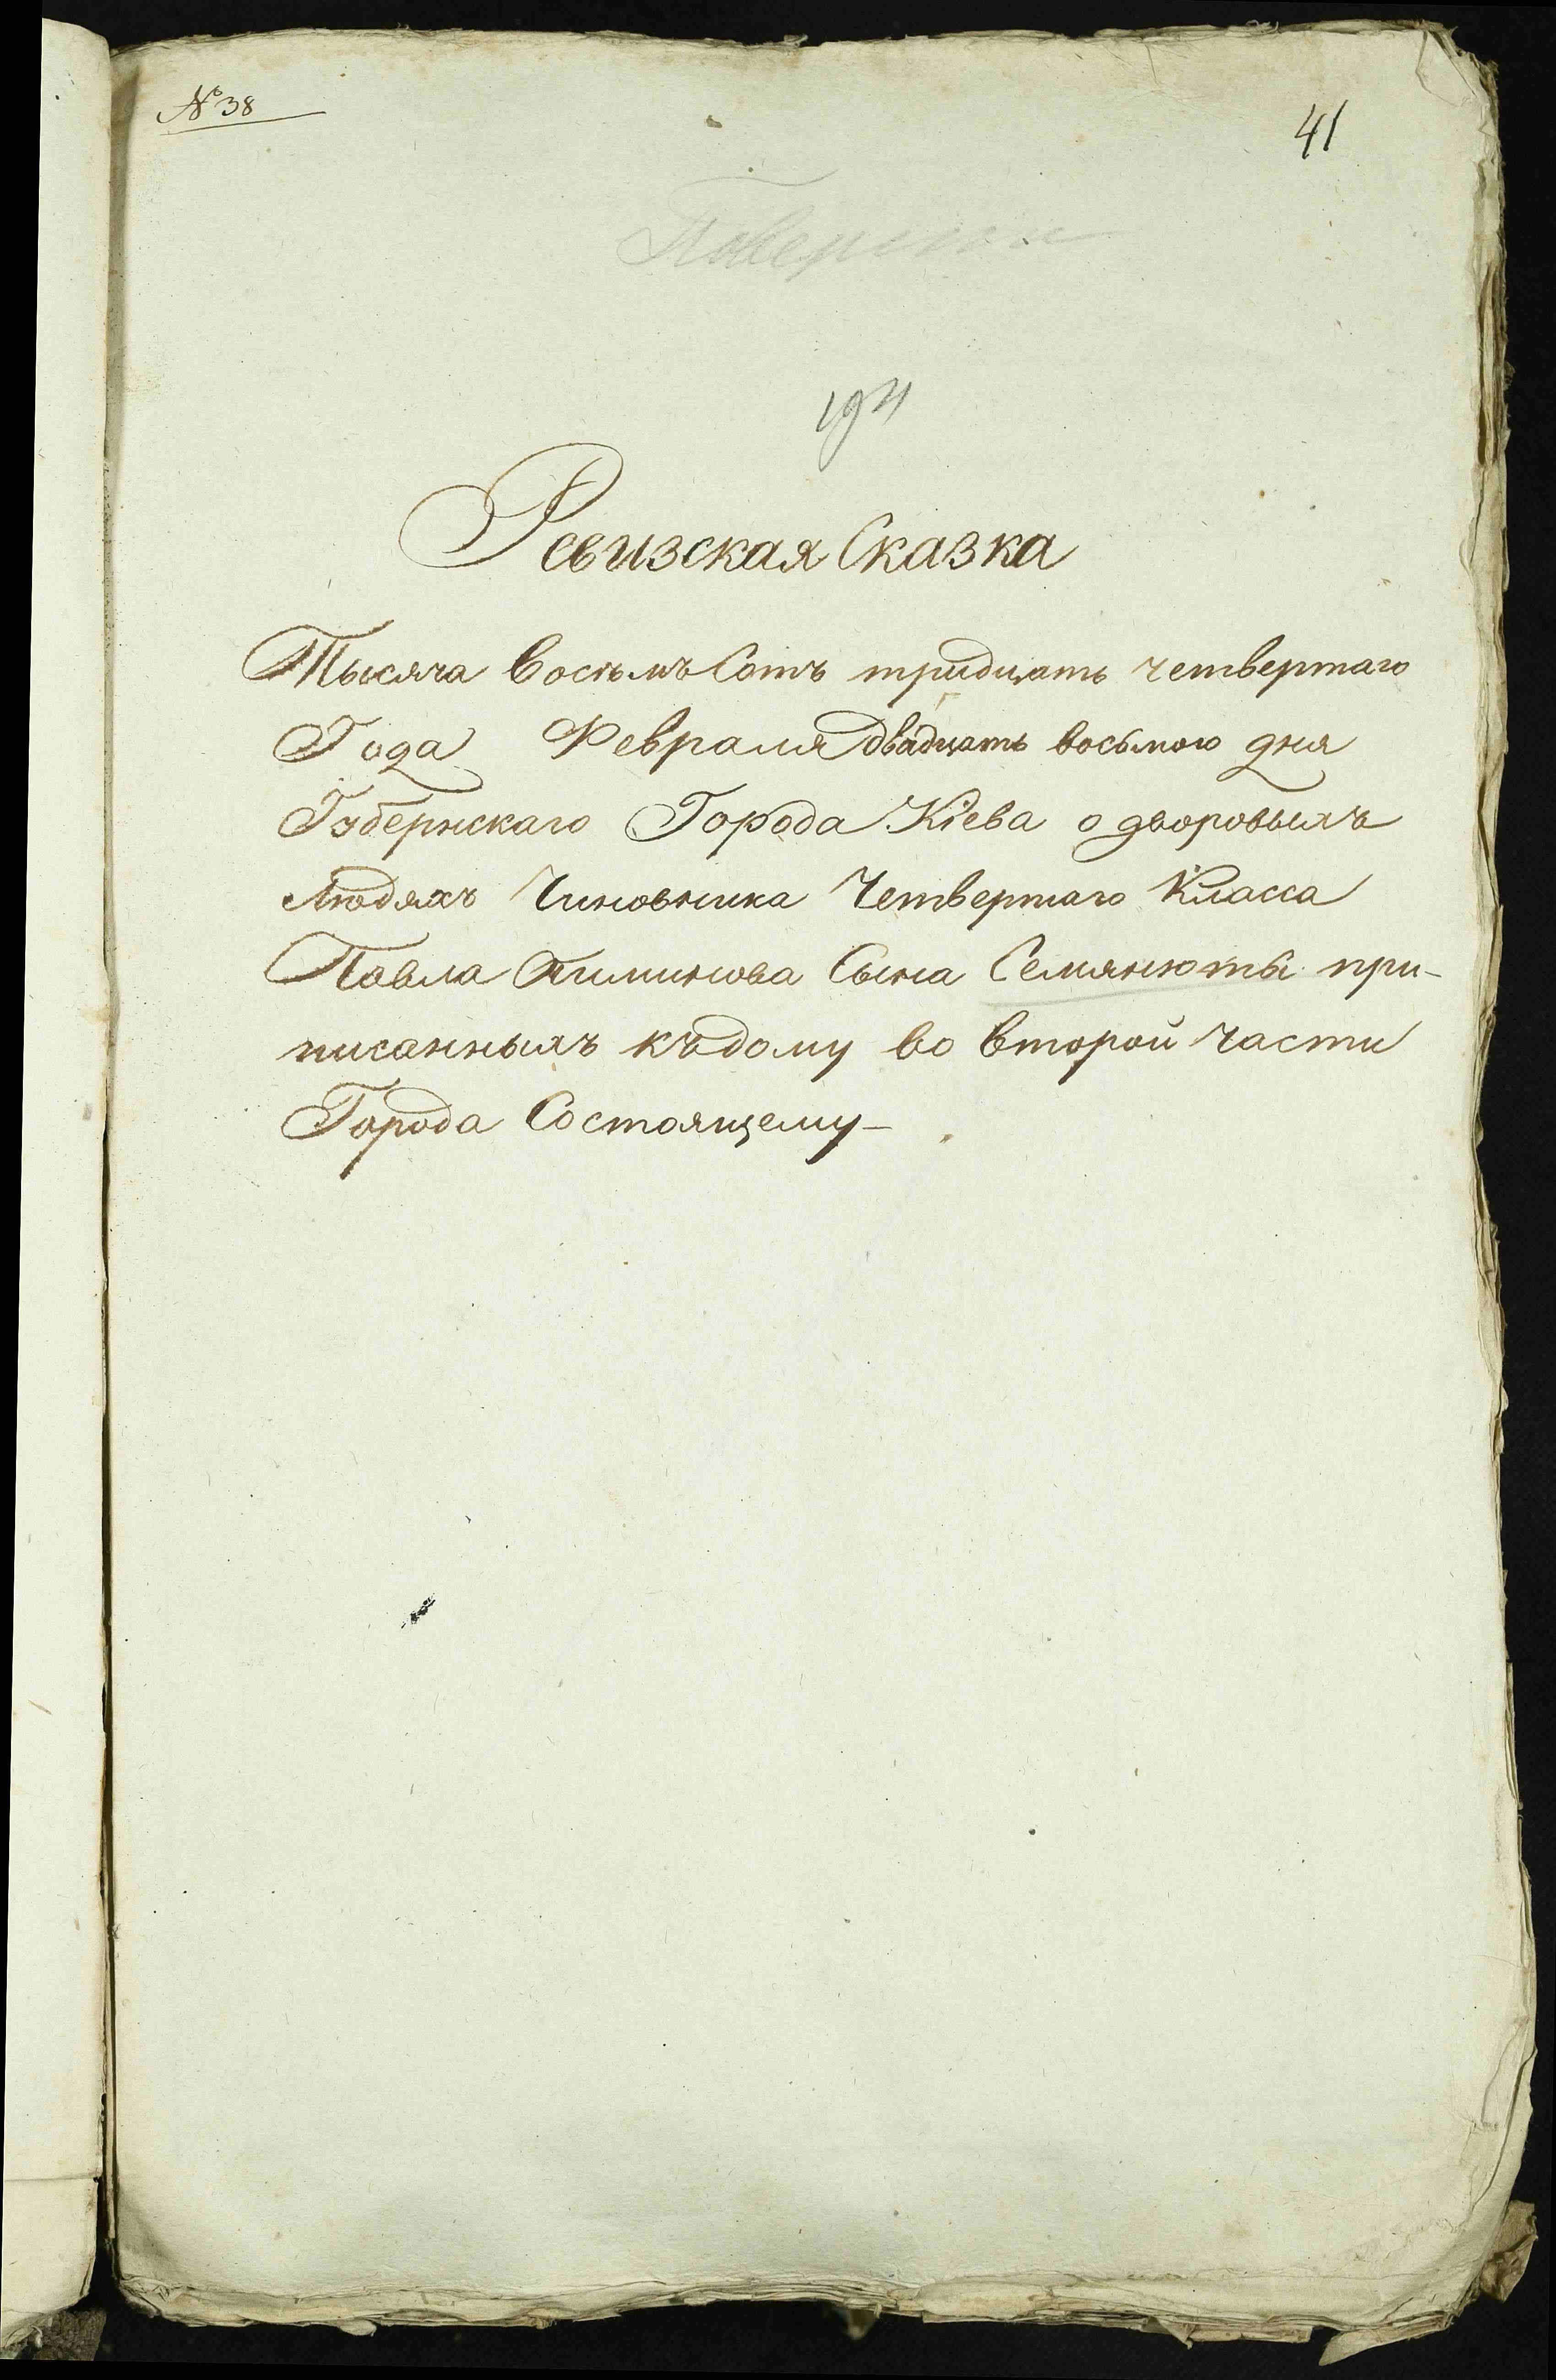 № 38
41
Ревизская Сказка
Тысяча Восемъ Сотъ тридцать четвертаго
Года Февраля двадцать восьмого дня
Губернскаго Города Кіева о дворовыхъ
Людяхъ Чиновника Четвертаго Класса
Павла Пиминова Сына Семянюты при-
писанныхъ къ дому во второй части
Города Состоящему-